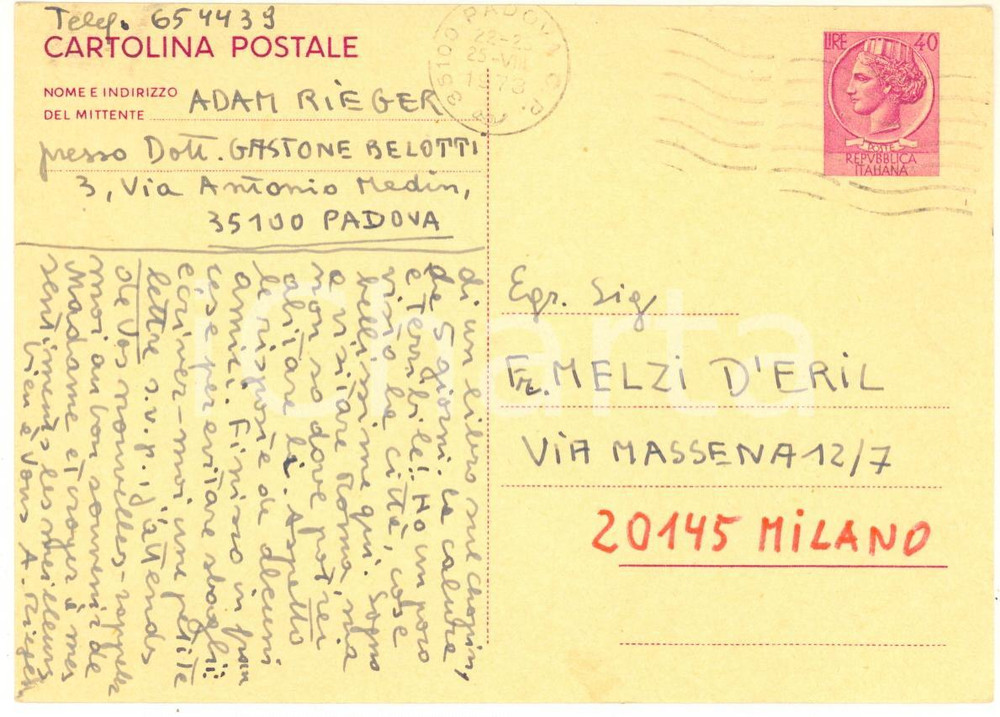 Telef. 654439
CARTOLINA POSTALE
NOME E INDIRIZZO
DEL MITTENTE
ADAM RIEGER
presso Dott. GASTONE BELOTTI
3, Via Antonio Medin,
35100 PADOVA
35100 PADOVA C.P.
25-VIII
1973
LIRE 40
POSTE
REPVBBLICA
ITALIANA
Egr. Sig
Fr. MELZI D'ERIL
VIA MASSENA 12/7
20145 MILANO
di un libro su Chopin,
de 5 giorni. la calura
è terribile! Ho un poco
visto la città, cose
bellissime qui. Sogno
a visitare Roma, ma
non so dove potrei
abitare li. Aspetto
le risposte da alcuni
amici. Finisco in fran
cese per evitare sbagli:
écrivez-moi une petite
lettre s.v.p. j'attends
de Vos nouvelles - rappelez
moi au bon souvenir de
Madame et croyez à mes
sentiments les meilleurs
bien à Vous A. Rieger
iCharta